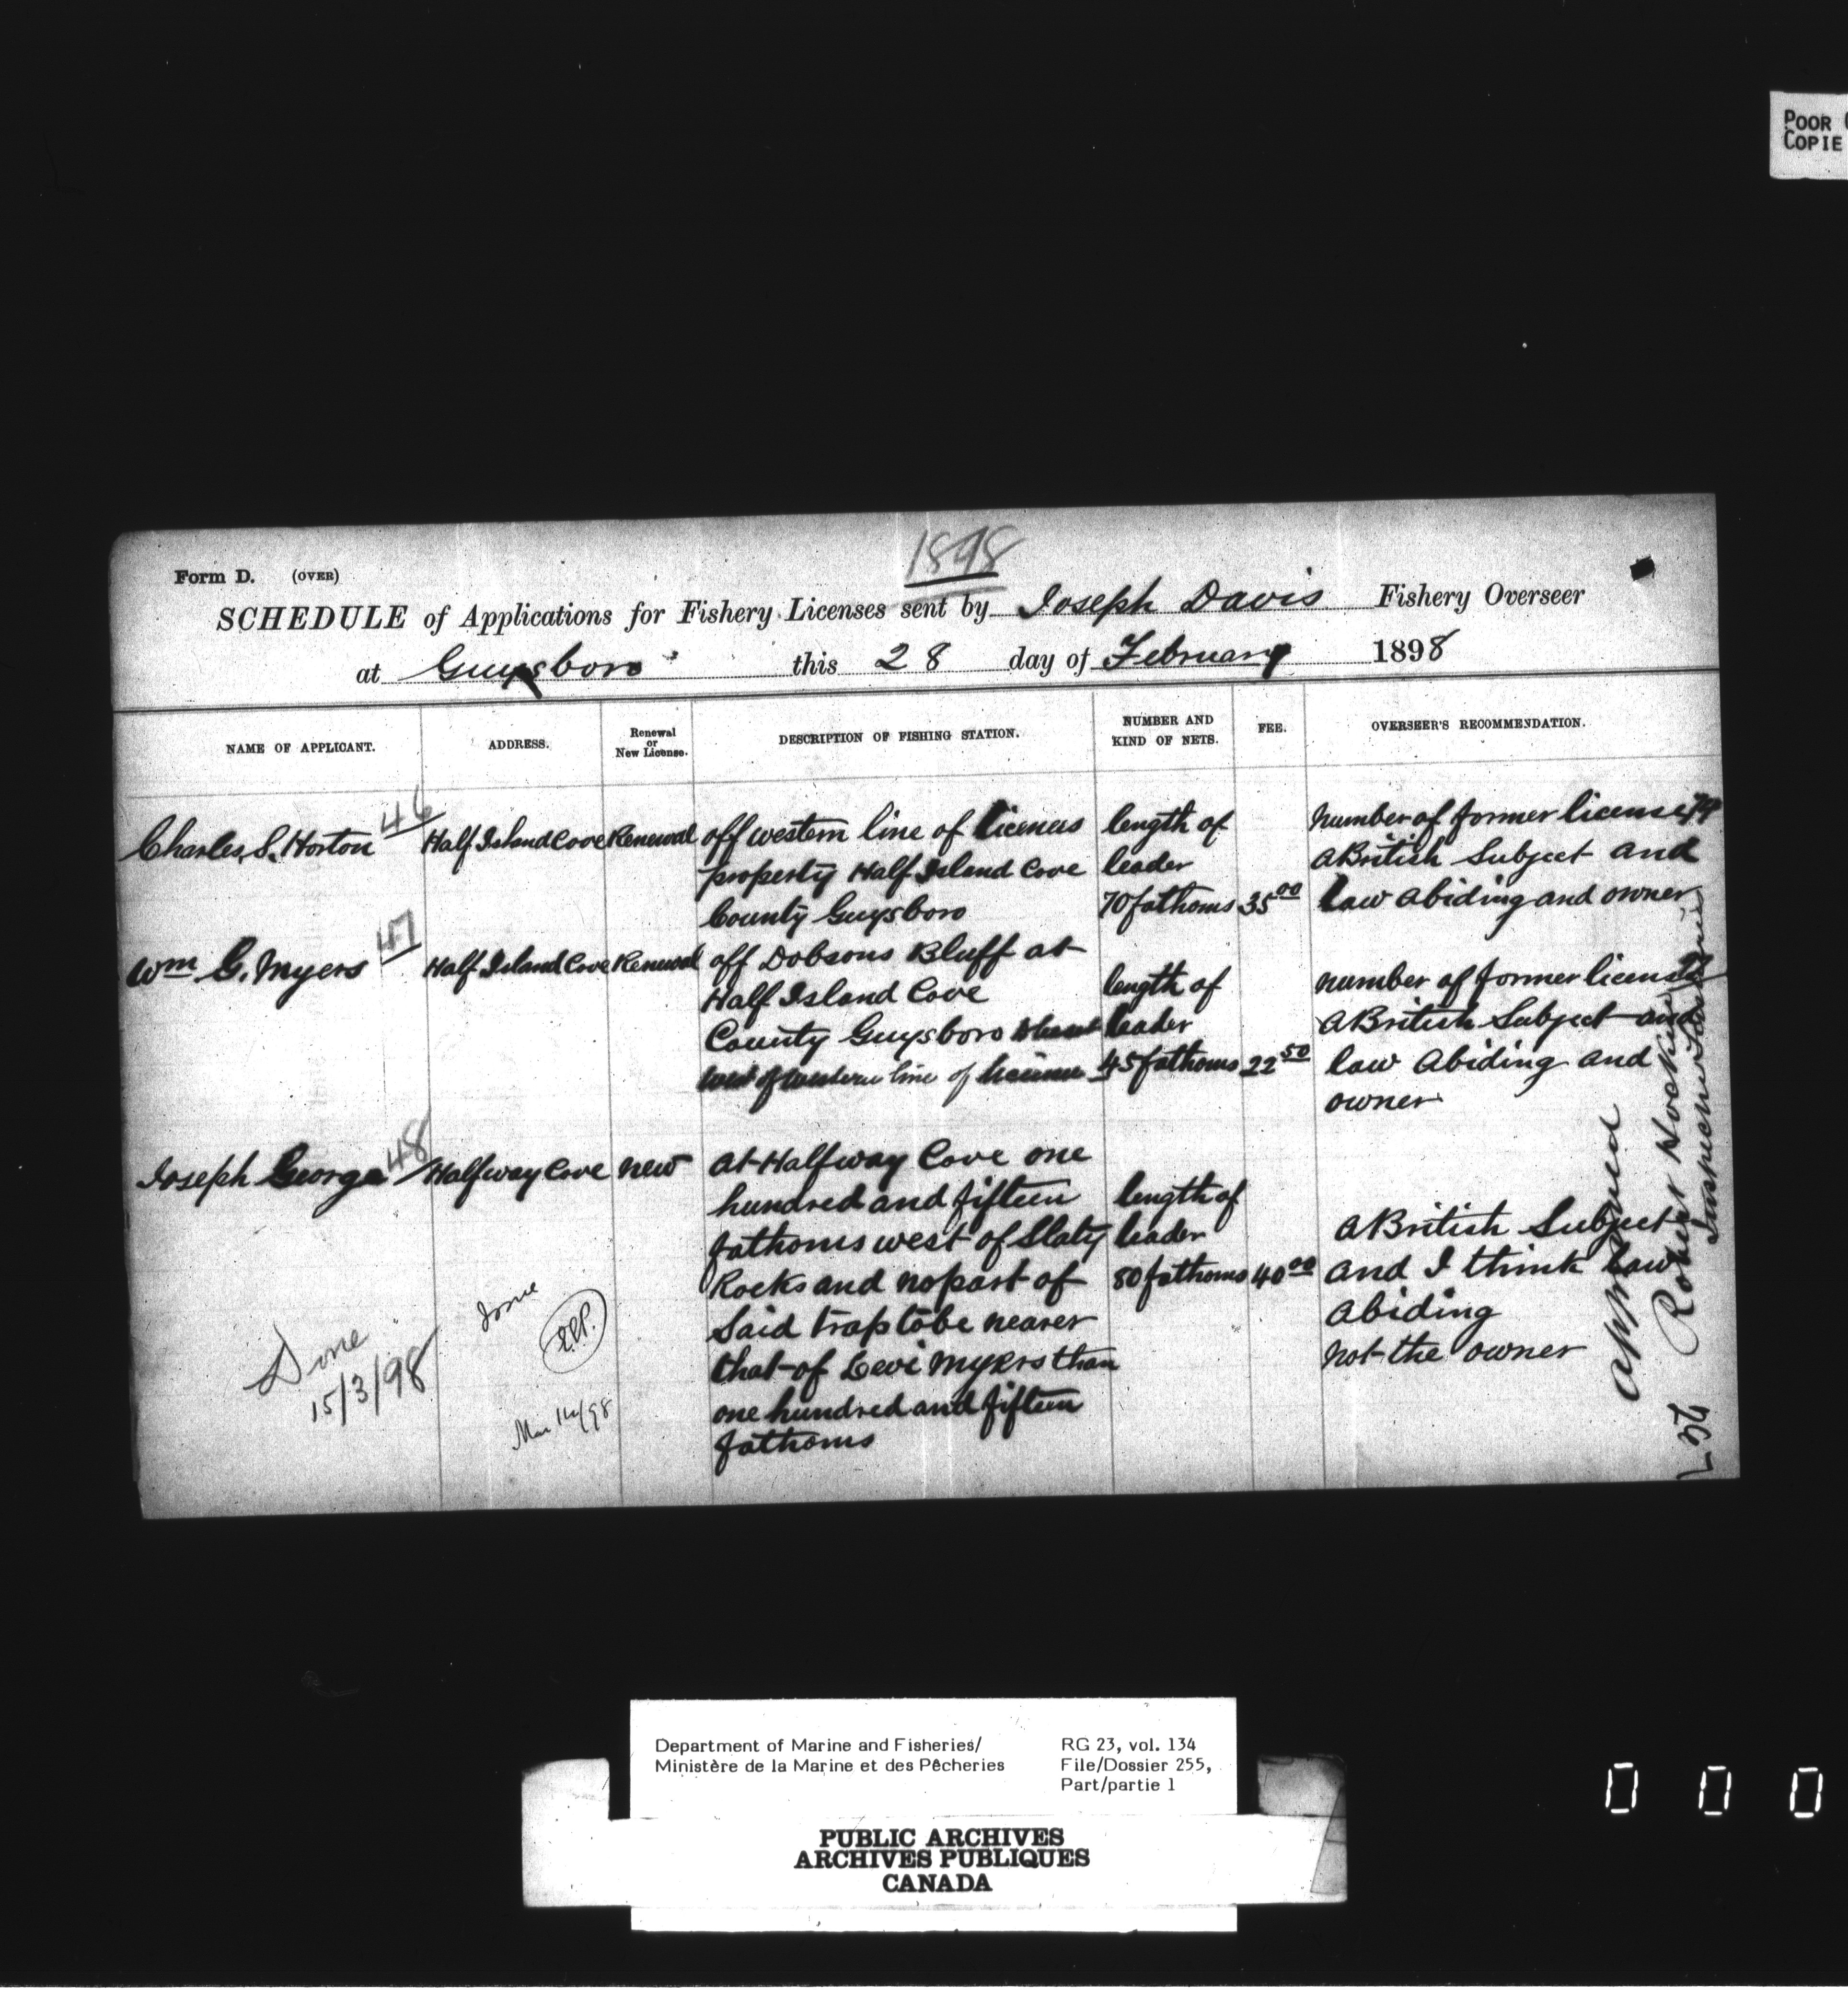 POOR
COPIE
1898
Form D. (OVER)
SCHEDULE of Applications for Fishery Licenses sent by Joseph Davis Fishery Overseer
at Guysboro this 28 day of February 1898
NAME OF APPLICANT.
ADDRESS.
Renewal
or
New License.
DESCRIPTION OF FISHING STATION.
NUMBER AND
KIND OF NETS.
FEE.
OVERSEER'S RECOMMENDATION.
46
Charles S. Horton
Half Island Cove
Renewal
off western line of
property Half Island Cove
County Guysboro
length of
leader
70 fathoms
35 00
Number of former license
A British Subject and
Law Abiding and owner
47
Wm G. Myers
Half Island Cove
Renewal
off Dobsons Bluff at
Half Island Cove
County Guysboro
line of
length of
leader
45 fathoms
22 50
number of former license
A British Subject and
law Abiding and
owner
48
Joseph George
Halfway Cove
new
At Halfway Cove one
hundred and fifteen
fathoms west of Slaty
Rocks and no part of
Said trap to be nearer
that of Levi Myers than
one hundred and fifteen
fathoms
length of
leader
80 fathoms
40 00
A British Subject
and I think Law
Abiding
not the owner
Done
15/3/98
Mar 14/98
Approved
Robert Hockin
Department of Marine and Fisheries/
Ministère de la Marine et des Pêcheries
RG 23, vol. 134
File/Dossier 255,
Part/partie 1
PUBLIC ARCHIVES
ARCHIVES PUBLIQUES
CANADA
0 0 0